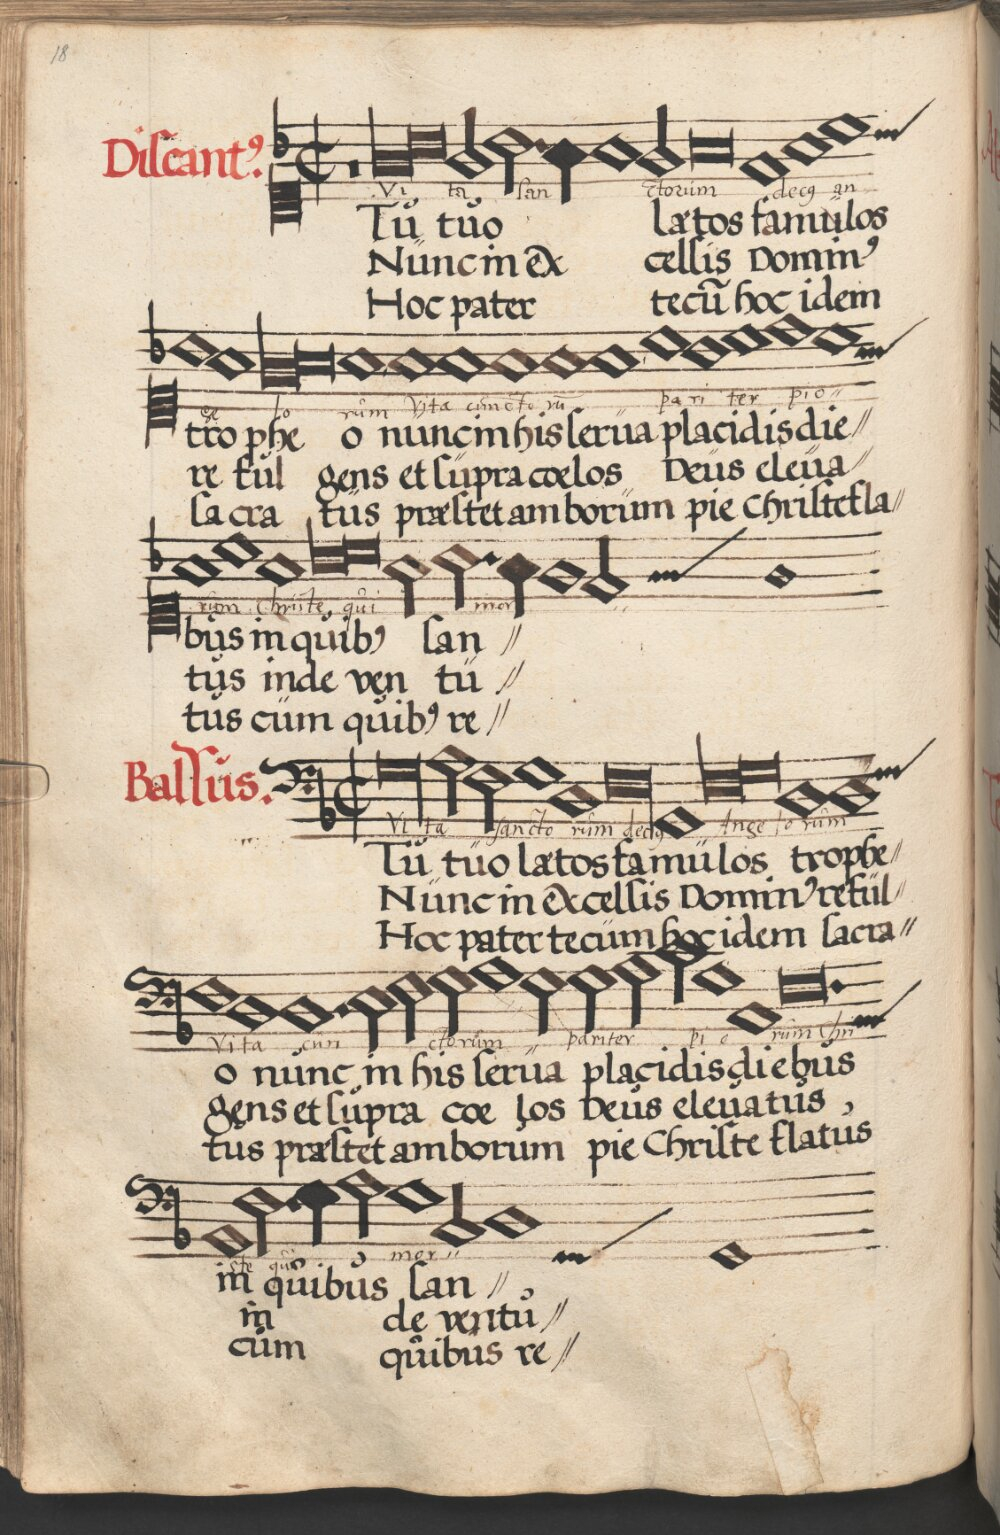 18
Discantꝰ.
Vi ta san ctorum decꝰ an
Tu tuo lætos famulos
Nunc in ex cellis Dominꝰ
Hoc pater tecū hoc idem
ge lo rum Vita cunctorū pariter pio //
trophe o nunc in his serua placidis die//
re ful gens et supra cœlos Deus eleua//
sacra tus præstet amborum pie Christe fla//
rum Christe qui mor //
bus in quibꝰ san //
tus inde ven tu //
tus cum quibꝰ re //
Bassus.
Vita sancto rum decꝰ Ange lo rum
Tu tuo lætos famulos trophe//
Nunc in excellis Dominꝰ reful//
Hoc pater tecum hoc idem sacra//
Vita cun ctorum // pariter pi o rum Chri
o nunc in his serua placidis diebus
gens et supra cœ los Deus eleuatus
tus præstet amborum pie Christe flatus
iste qui mor //
in quibus san //
in de ventu //
cum quibus re //